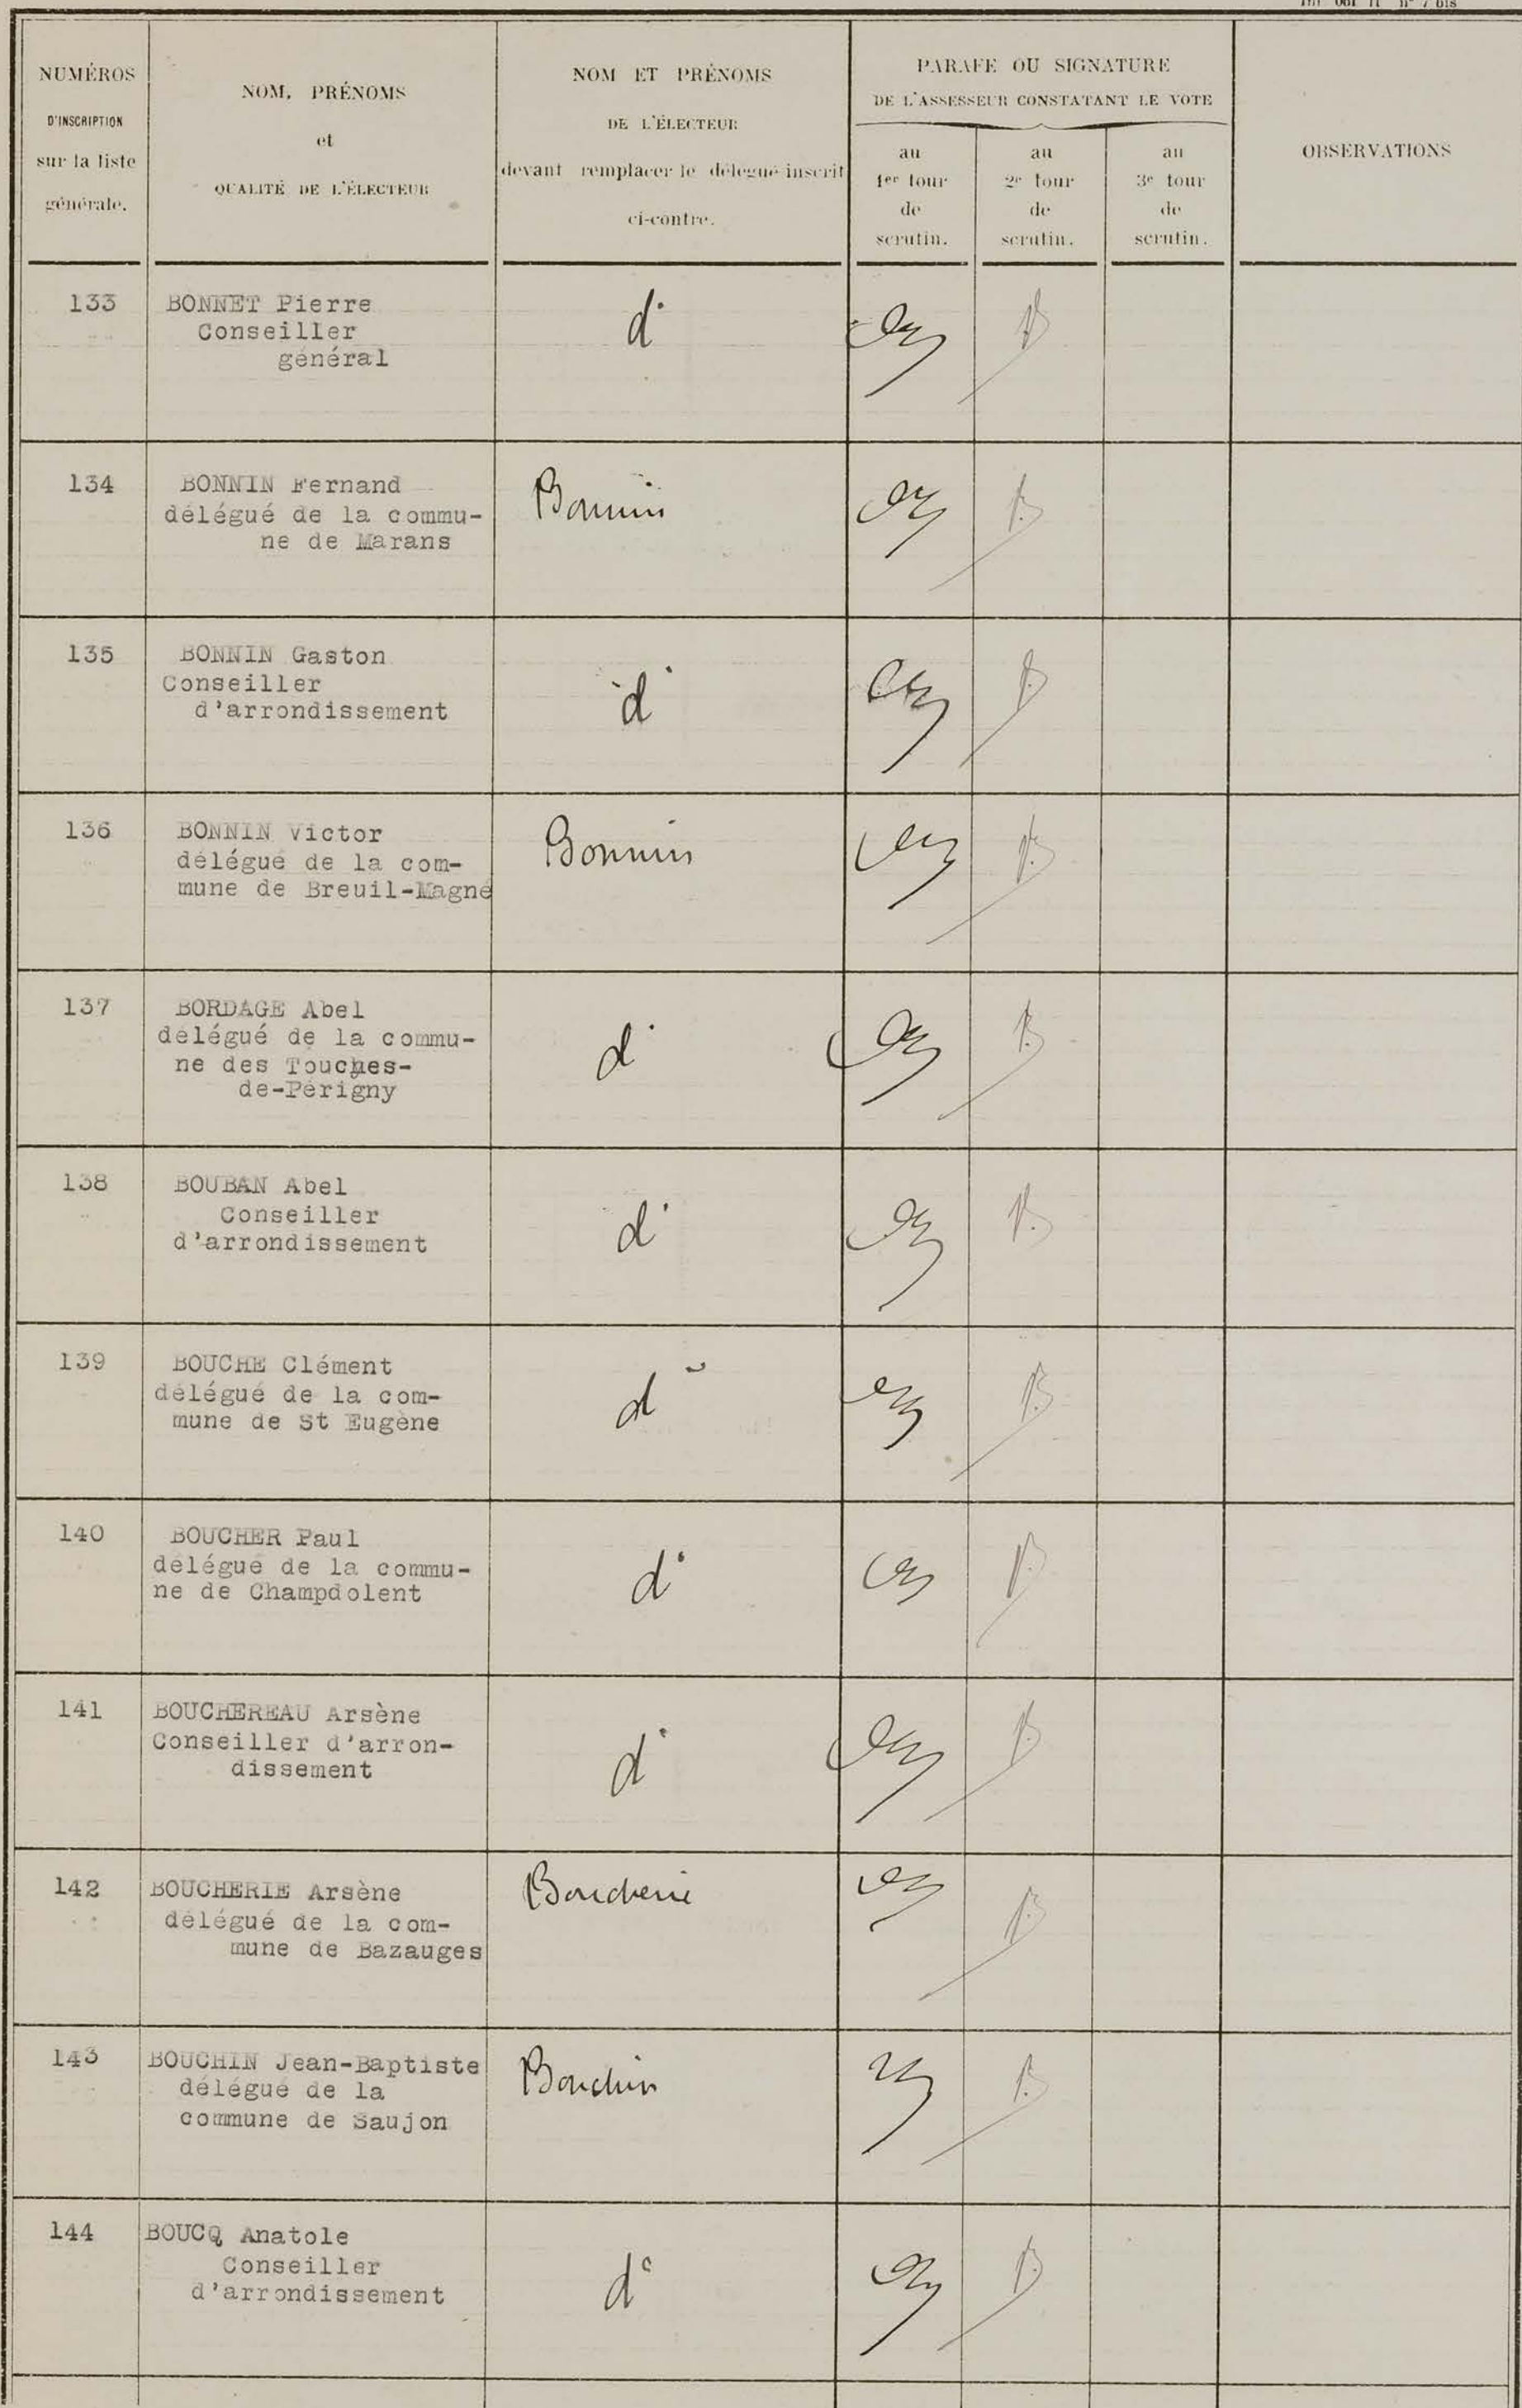 NUMÉROS
D'INSCRIPTION
sur la liste
générale.
NOM, PRÉNOMS
et
QUALITÉ DE L'ÉLECTEUR
NOM ET PRÉNOMS
DE L'ÉLECTEUR
devant remplacer le délégué inscrit
ci-contre.
PARAFE OU SIGNATURE
DE L'ASSESSEUR CONSTATANT LE VOTE
au
1er tour
de
scrutin.
au
2e tour
de
scrutin.
au
3e tour
de
scrutin.
OBSERVATIONS
133
BONNET Pierre
Conseiller
général
d°
134
BONNIN Fernand
délégué de la commu-
ne de Marans
Bonnin
135
BONNIN Gaston
Conseiller
d'arrondissement
d°
136
BONNIN Victor
délégué de la com-
mune de Breuil-Magné
Bonnin
137
BORDAGE Abel
délégué de la commu-
ne des Touches-
de-Périgny
d°
138
BOUBAN Abel
Conseiller
d'arrondissement
d°
139
BOUCHE Clément
délégué de la com-
mune de St Eugène
d°
140
BOUCHER Paul
délégué de la commu-
ne de Champdolent
d°
141
BOUCHEREAU Arsène
Conseiller d'arron-
dissement
d°
142
BOUCHERIE Arsène
délégué de la com-
mune de Bazauges
Boucherie
143
BOUCHIN Jean-Baptiste
délégué de la
commune de Saujon
Bouchin
144
BOUCQ Anatole
Conseiller
d'arrondissement
d°